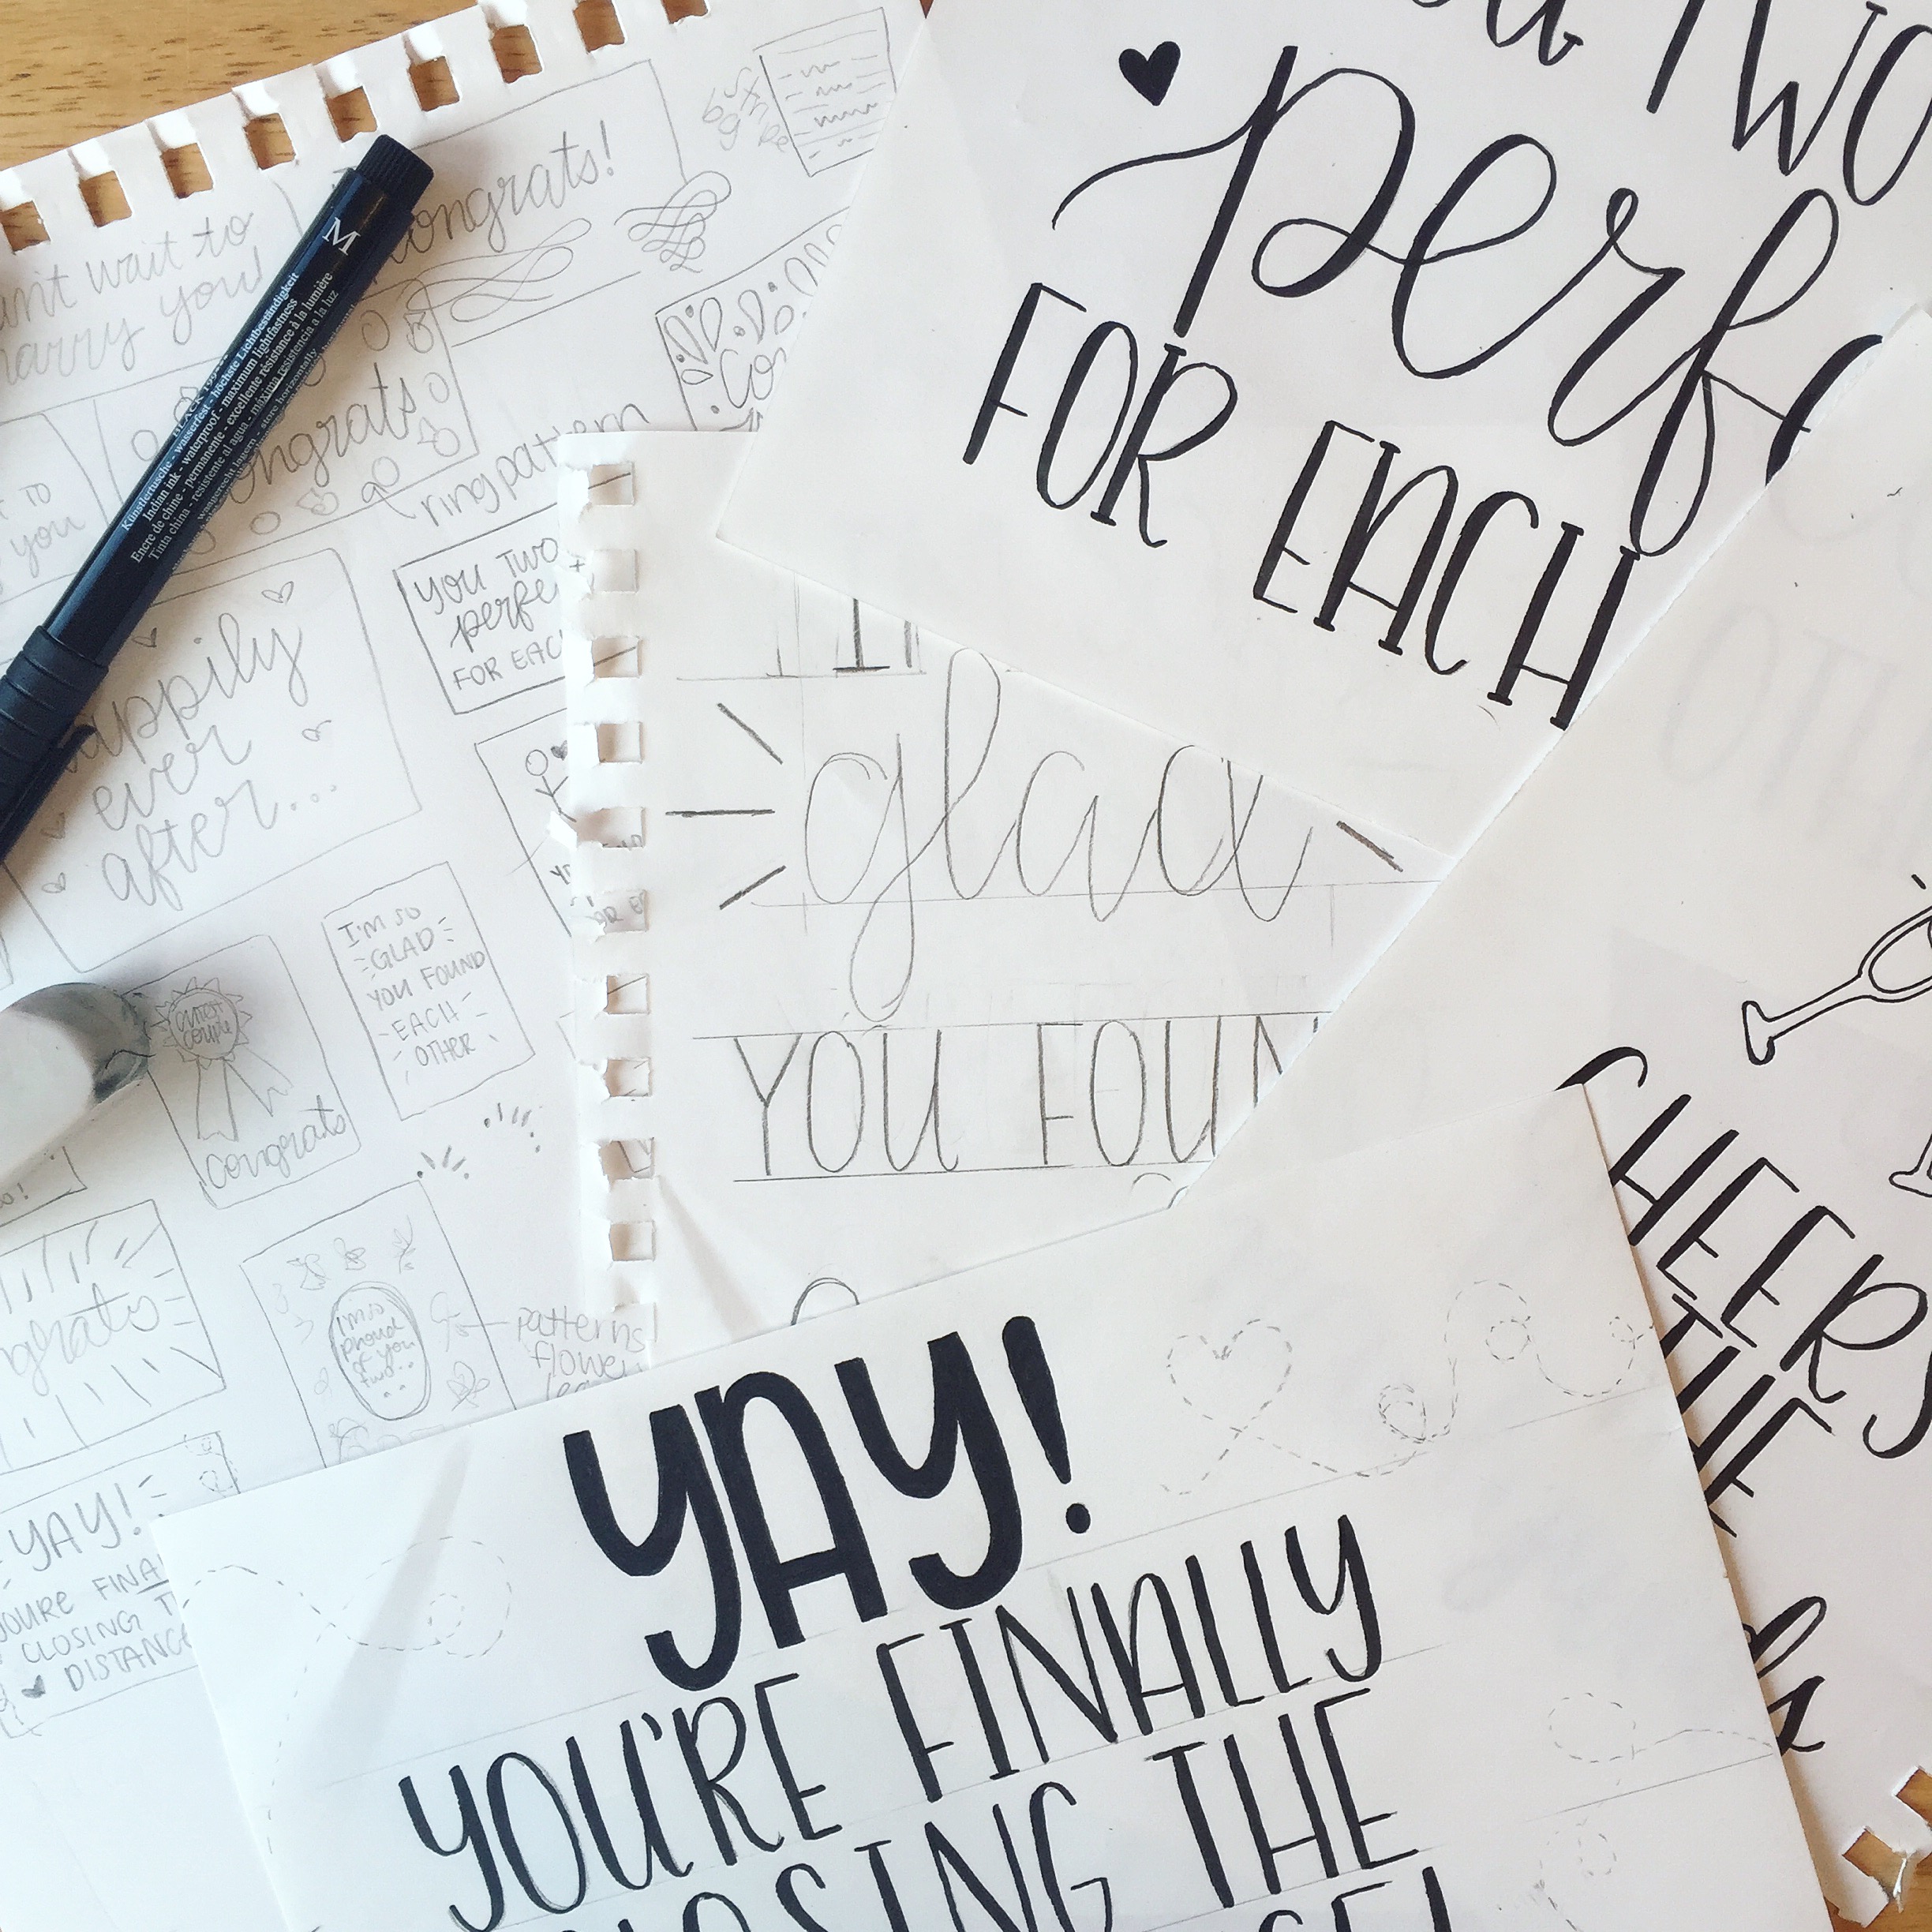 YOU TWO
perfe
FOR EACH
congrats!
can't wait to
marry you!
M
Künstlertusche - wasserfest - höchste Lichtbeständigkeit
Indian ink - waterproof - maximum lightfastness
Encre de chine - permanente - excellente résistance à la lumière
Tinta china - resistente al agua - máxima resistencia a la luz
congrats
Co
ring pattern
TO
you
YOU TWO
perfe
FOR EAC
happily
ever
after...
glad
YOU FOUN
I'M SO
GLAD
YOU FOUND
EACH
OTHER
cutest
couple
congrats
ngrats
I'm so
proud
of you
two...
patterns
flower
CHEERS
THE
YAY!
YOU'RE FINA
CLOSING T
DISTANCE
YAY!
YOU'RE FINALLY
LOSING THE